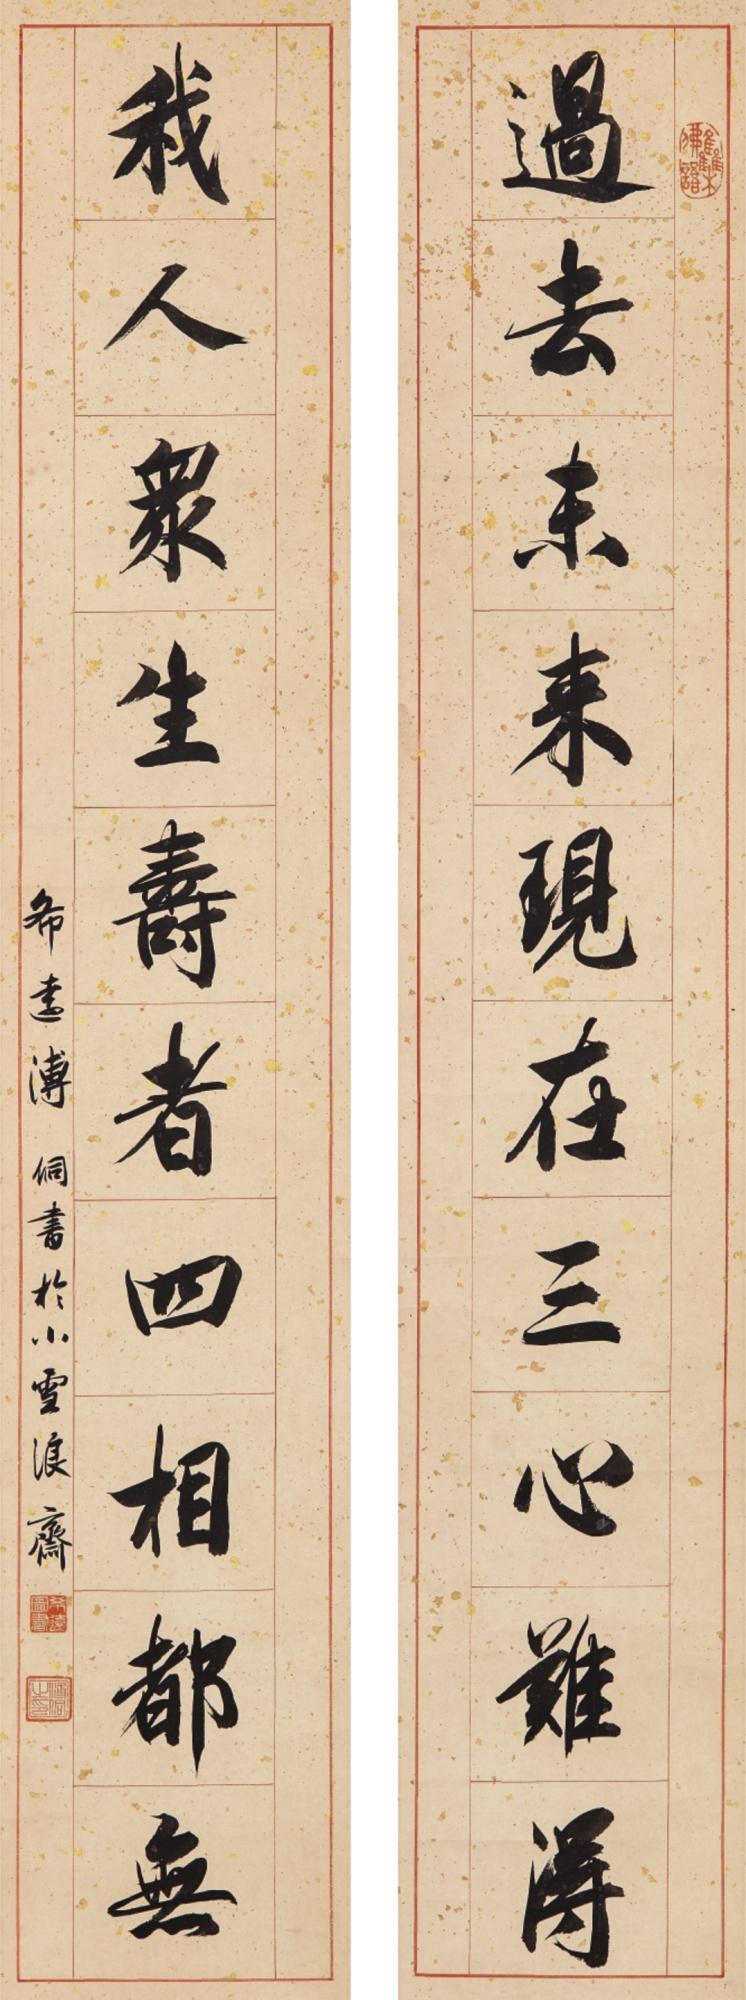 過去未来現在三心難得
我人眾生壽者四相都無
希遠溥侗書於小雪浪齋